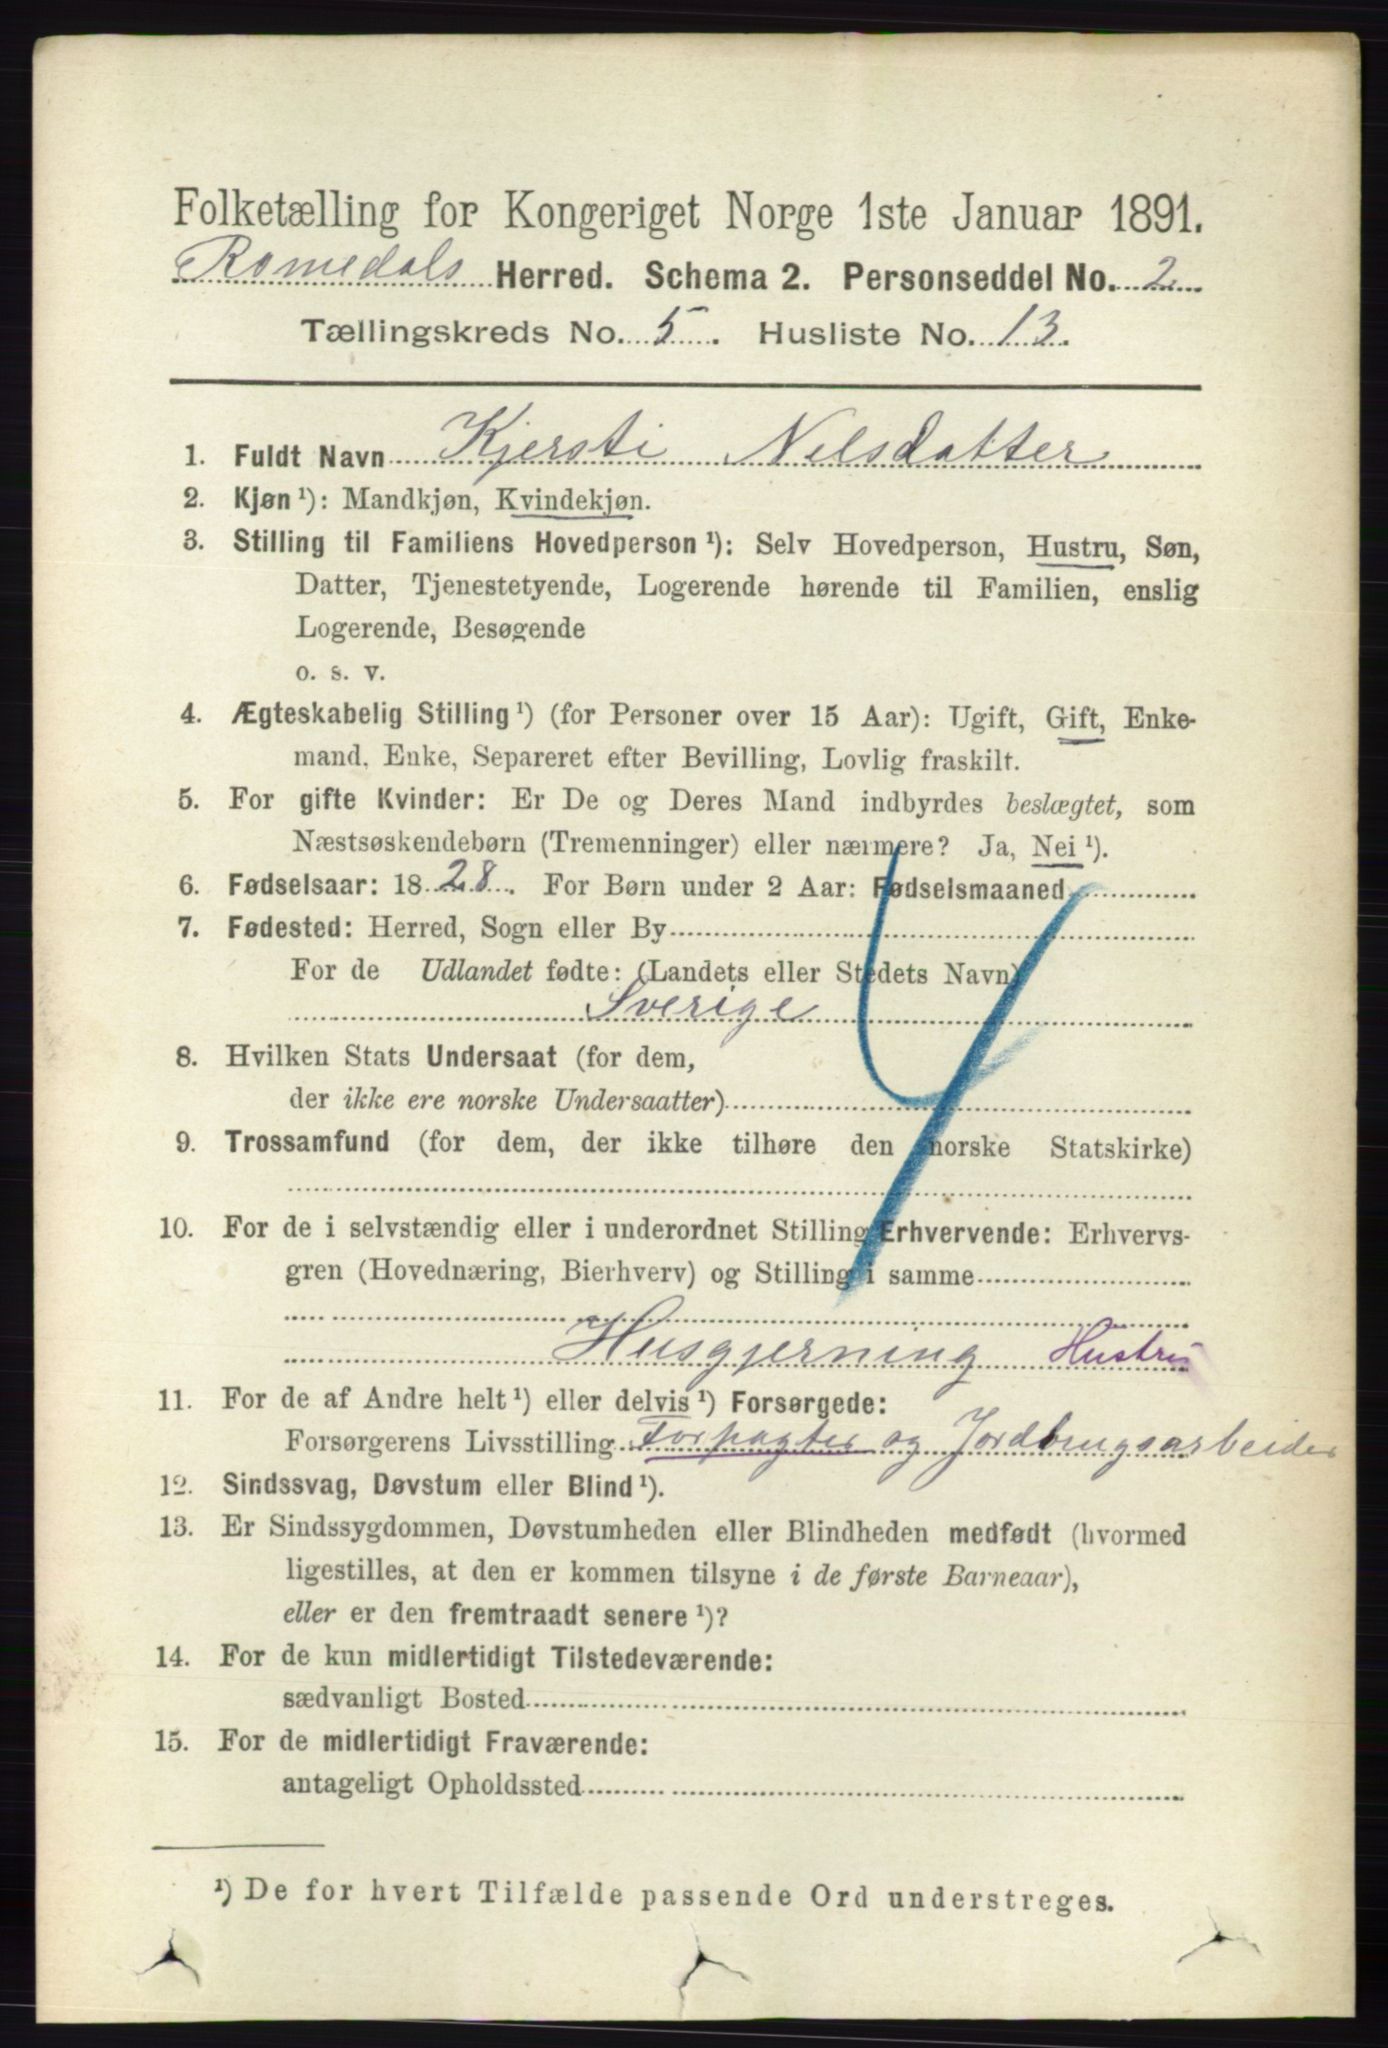 Folketælling for Kongeriget Norge 1ste Januar 1891.
Romedals Herred. Schema 2. Personseddel No. 2
Tællingskreds No. 5. Husliste No. 13.
1. Fuldt Navn Kjersti Nelsdatter
2. Kjøn ¹): Mandkjøn, Kvindekjøn.
3. Stilling til Familiens Hovedperson ¹): Selv Hovedperson, Hustru, Søn,
Datter, Tjenestetyende, Logerende hørende til Familien, enslig
Logerende, Besøgende
o. s. v.
4. Ægteskabelig Stilling ¹) (for Personer over 15 Aar): Ugift, Gift, Enke-
mand, Enke, Separeret efter Bevilling, Lovlig fraskilt.
5. For gifte Kvinder: Er De og Deres Mand indbyrdes beslægtet, som
Næstsøskendebørn (Tremenninger) eller nærmere? Ja, Nei ¹).
6. Fødselsaar: 1828. For Børn under 2 Aar: Fødselsmaaned
7. Fødested: Herred, Sogn eller By
For de Udlandet fødte: (Landets eller Stedets Navn)
Sverige
8. Hvilken Stats Undersaat (for dem,
der ikke ere norske Undersaatter)
9. Trossamfund (for dem, der ikke tilhøre den norske Statskirke)
10. For de i selvstændig eller i underordnet Stilling Erhvervende: Erhvervs-
gren (Hovednæring, Bierhverv) og Stilling i samme
Husgjerning Hustru
11. For de af Andre helt ¹) eller delvis ¹) Forsørgede:
Forsørgerens Livsstilling Forpagter og Jordbrugsarbeider
12. Sindssvag, Døvstum eller Blind ¹).
13. Er Sindssygdommen, Døvstumheden eller Blindheden medfødt (hvormed
ligestilles, at den er kommen tilsyne i de første Barneaar),
eller er den fremtraadt senere ¹)?
14. For de kun midlertidigt Tilstedeværende:
sædvanligt Bosted
15. For de midlertidigt Fraværende:
antageligt Opholdssted
¹) De for hvert Tilfælde passende Ord understreges.